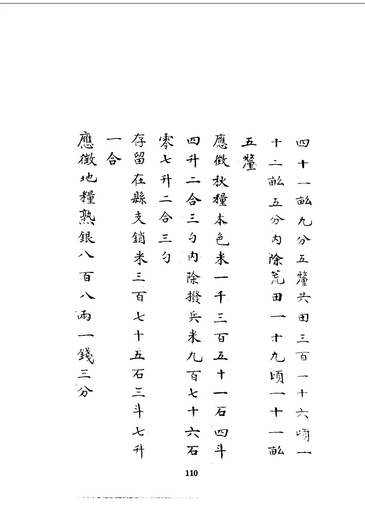 四十一畝九分五釐共田三百一十六頃一
十二畝五分內除荒田一十九頃一十一畝
五釐
應徵秋糧本色米一千三百五十一石四斗
四升二合三勺內除撥兵米九百七十六石
零七升二合三勺
存留在縣支銷米三百七十五石三斗七升
一合
應徵地糧熟銀八百八兩一錢三分
110